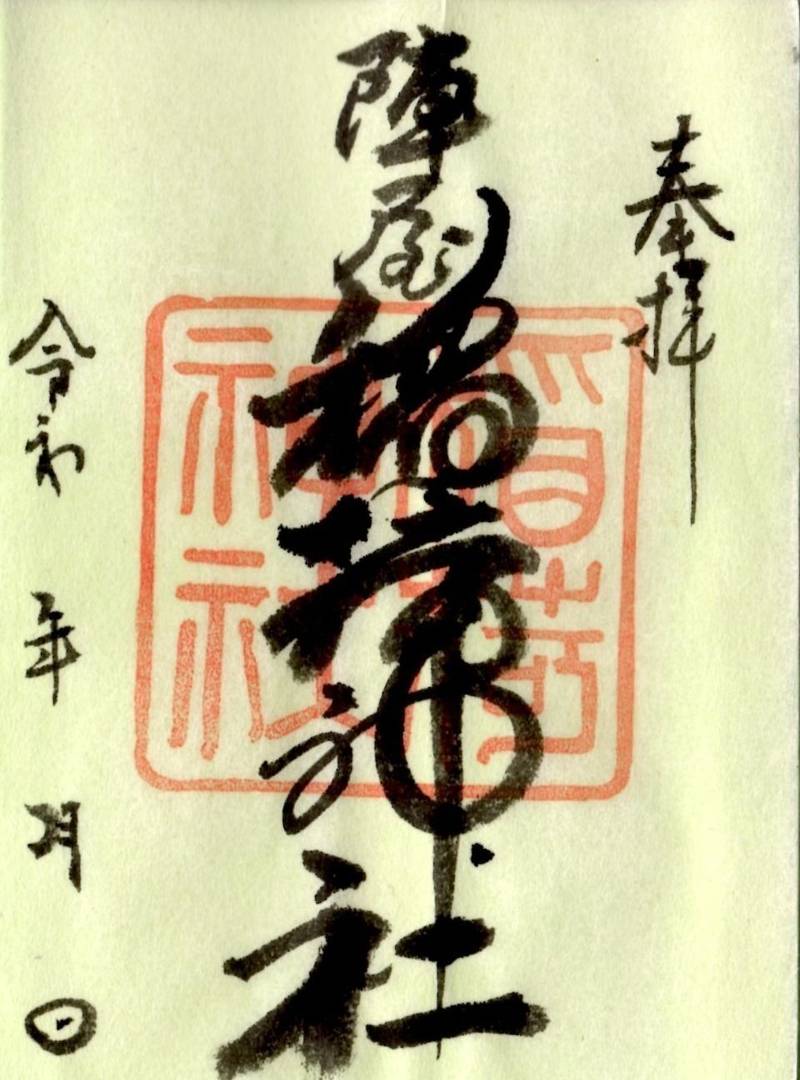 奉拝
陣屋稲荷神社
令和 年 月 日
神社